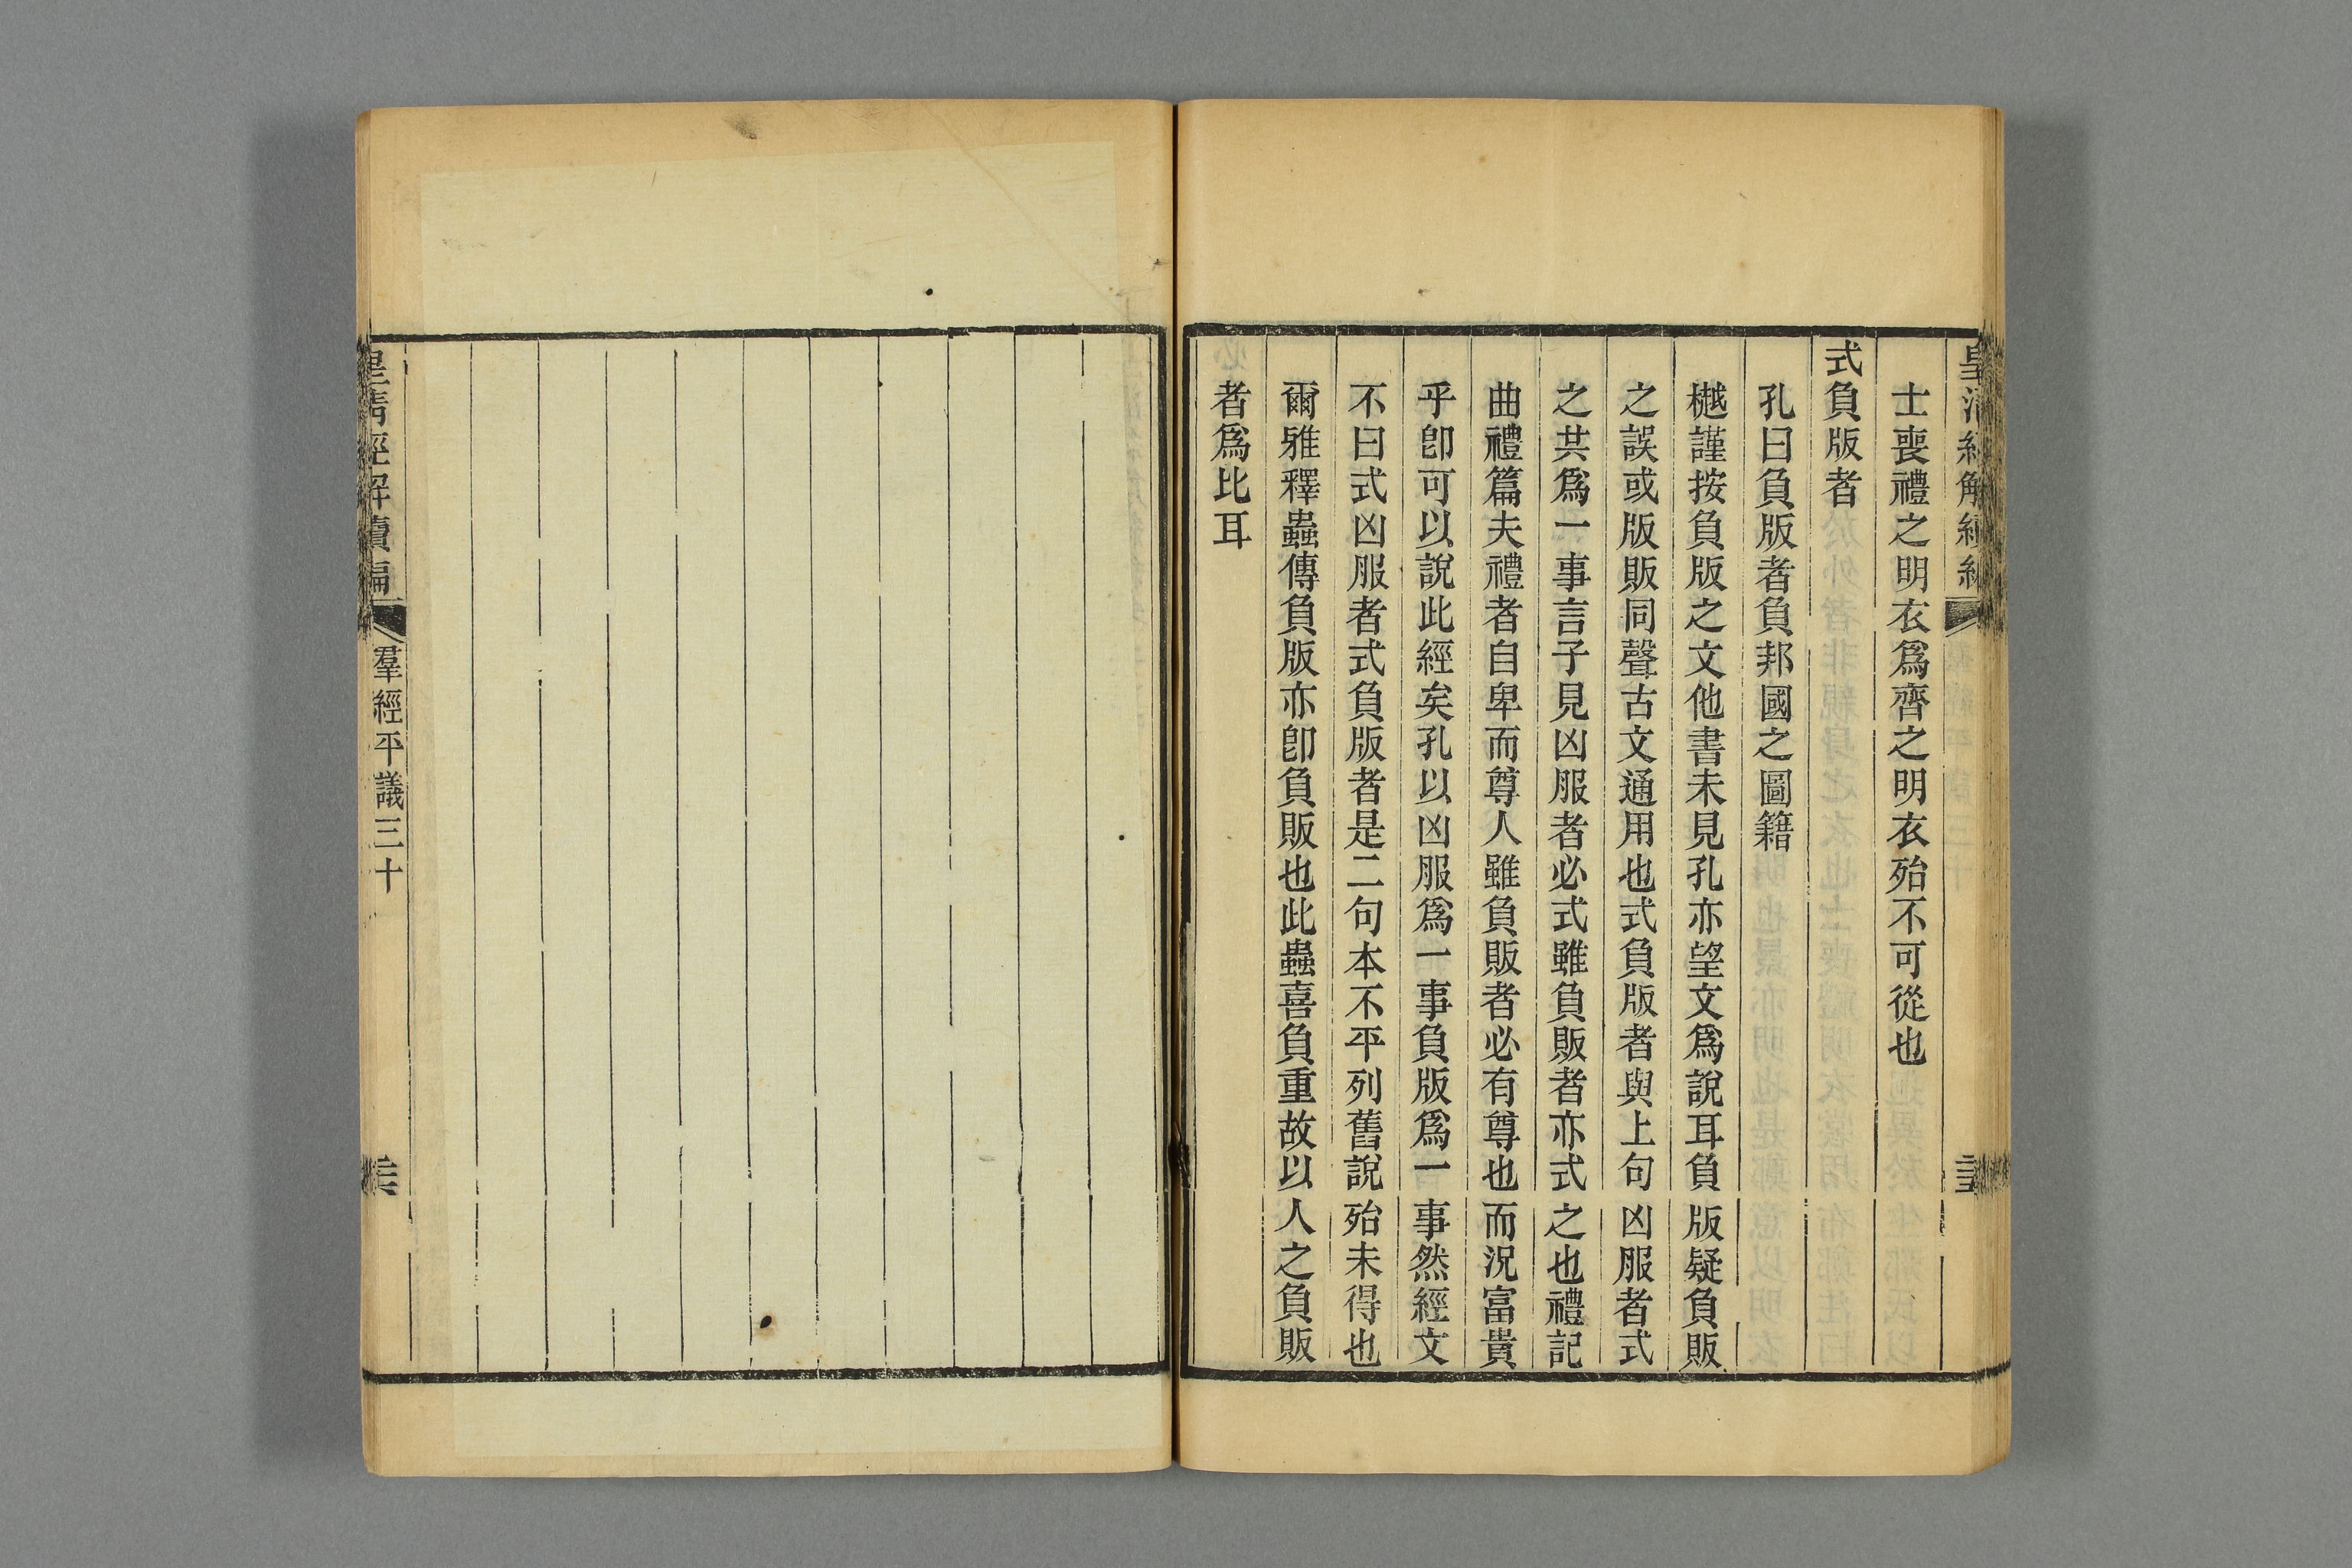 士喪禮之明衣爲齊之明衣殆不可從也
式負版者
孔曰負版者負邦國之圖籍
樾謹按負版之文他書未見孔亦望文爲說耳負版疑負販
之誤或版販同聲古文通用也式負版者與上句凶服者式
之共爲一事言子見凶服者必式雖負販者亦式之也禮記
曲禮篇夫禮者自卑而尊人雖負販者必有尊也而況富貴
乎卽可以說此經矣孔以凶服爲一事負版爲一事然經文
不曰式凶服者式負版者是二句本不平列舊說殆未得也
爾雅釋蟲傳負版亦卽負販也此蟲喜負重故以人之負販
者爲比耳
皇清經解續編
羣經平議三十